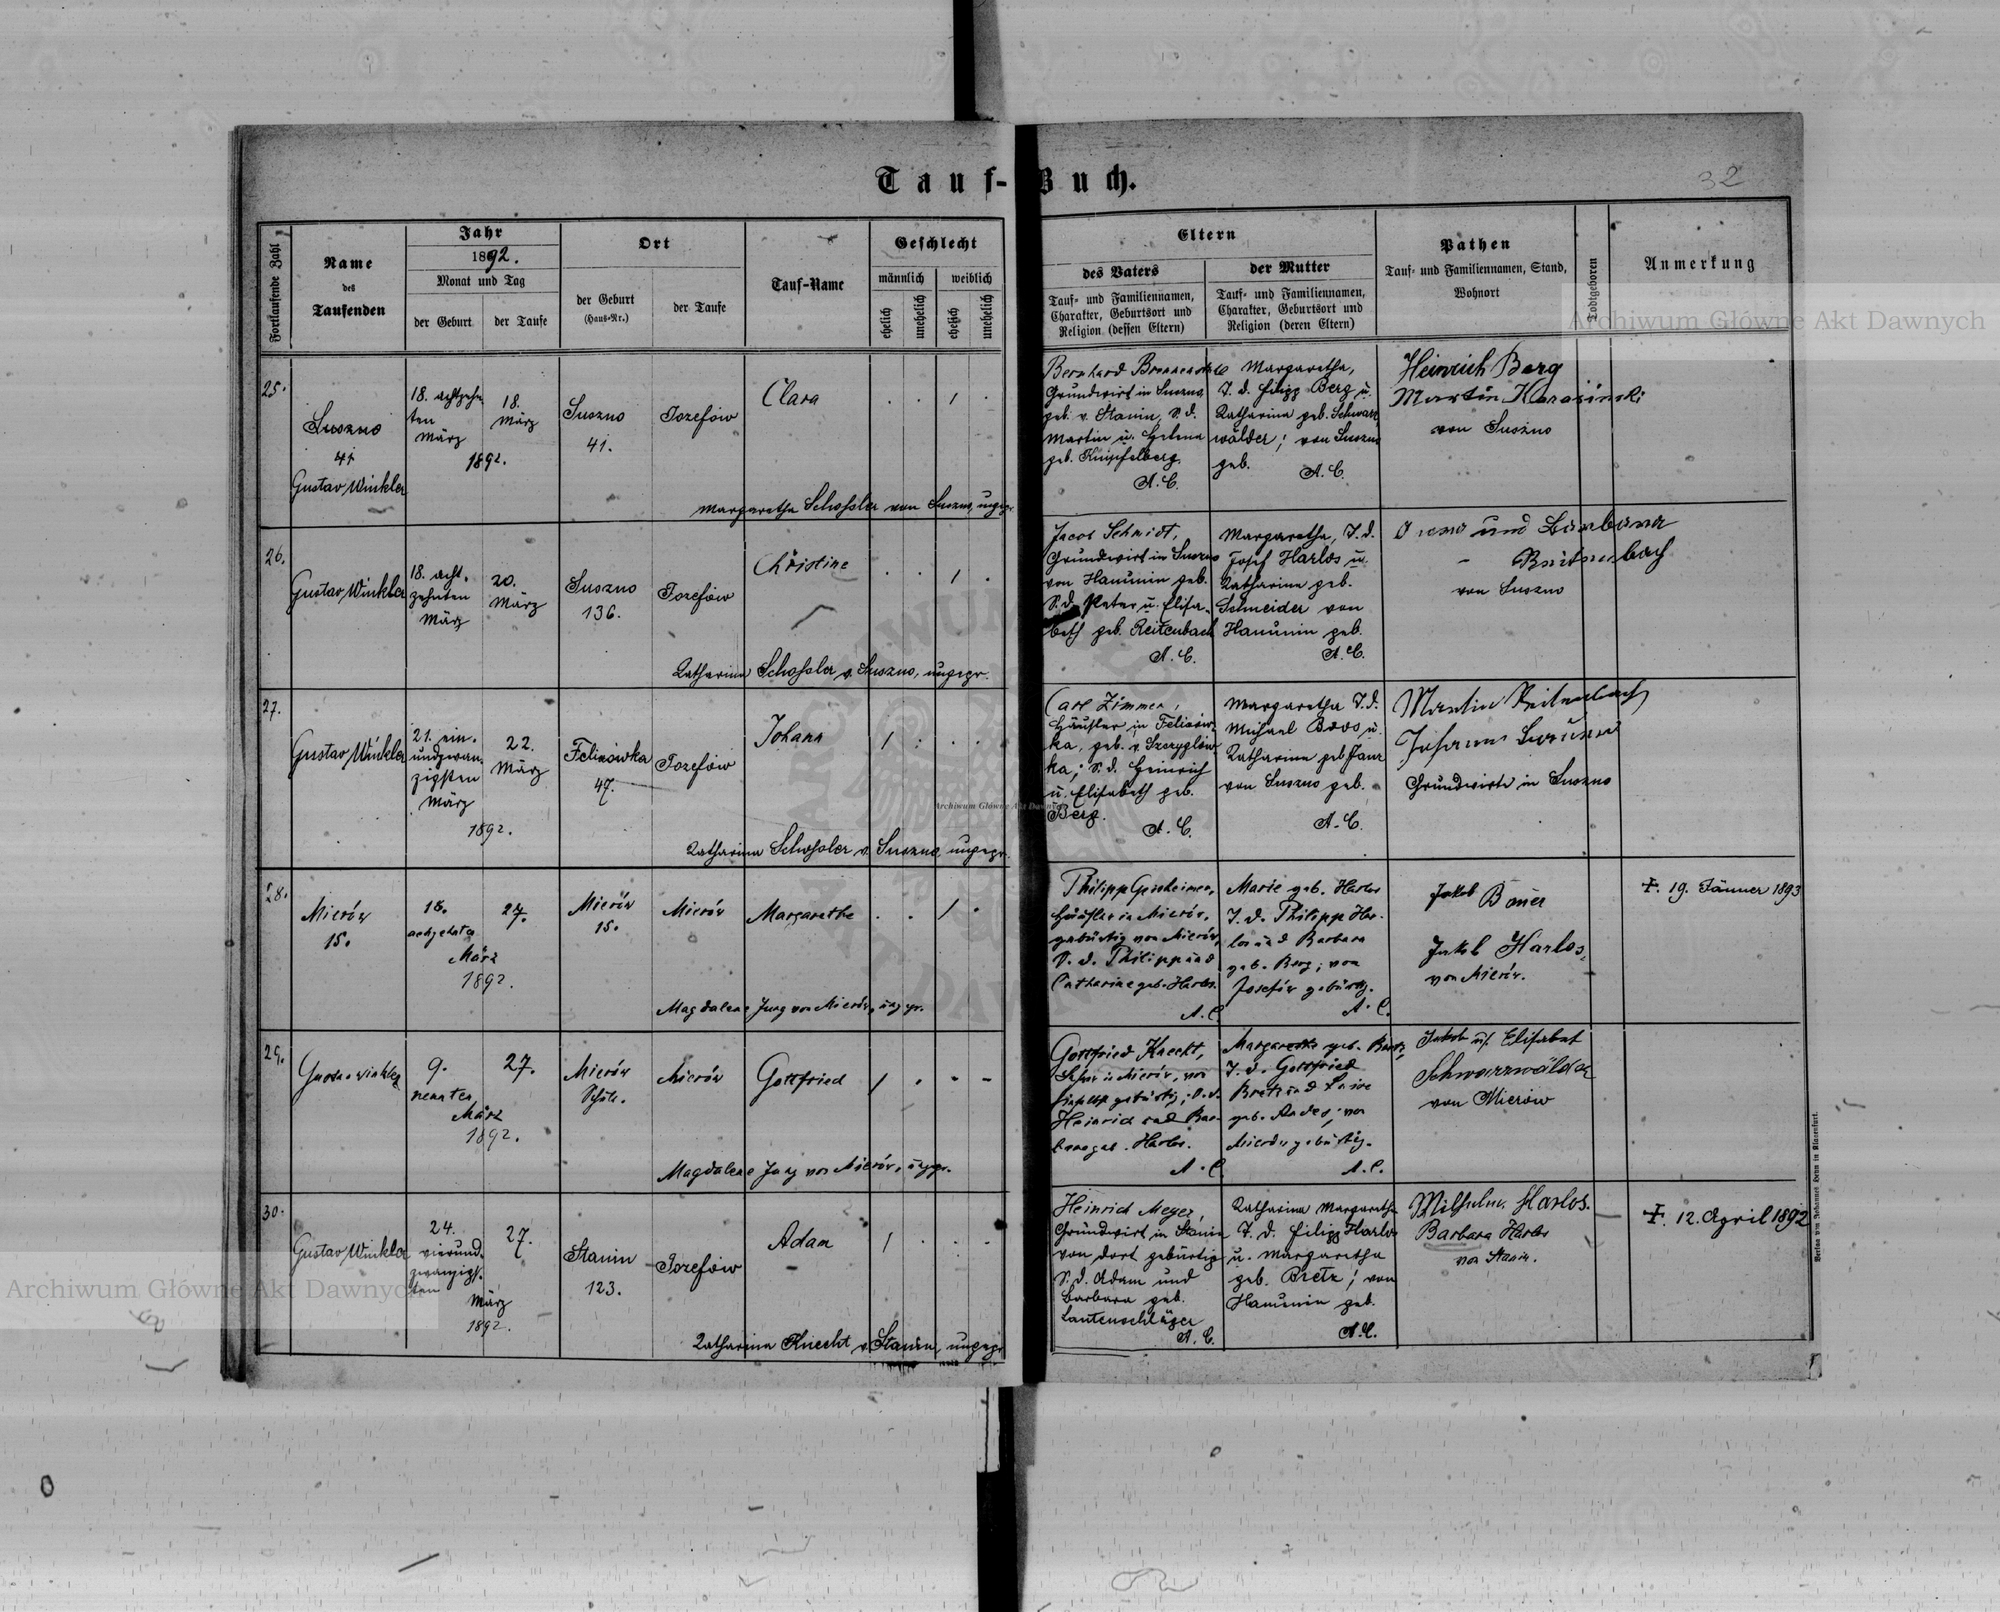 Tauf-Buch.
32
Fortlaufende Zahl
Name
des
Taufenden
Jahr
1892.
Monat und Tag
der Geburt
der Taufe
Ort
der Geburt
(Haus-Nr.)
der Taufe
Tauf-Name
Geschlecht
männlich
weiblich
ehelich
unehelich
ehelich
unehelich
Eltern
des Vaters
Tauf- und Familiennamen,
Charakter, Geburtsort und
Religion (dessen Eltern)
der Mutter
Tauf- und Familiennamen,
Charakter, Geburtsort und
Religion (deren Eltern)
Pathen
Tauf- und Familiennamen, Stand,
Wohnort
Todtgeboren
Anmerkung
25.
Suszno
41
Gustav Winkler
18. achtzehn
ten
März
1892.
18.
März
Suszno
41.
Jozefów
Clara
Margaretha Schossler von Suszno, ungepr.
Bernhard
Grundwirt in Suszno,
geb. v. Stanin, S. d.
Martin u. Helena
geb. Knipfelberg.
A. C.
Margaretha,
T. d. Filipp Berg u.
Katharina geb. Schwarz
wälder; von Suszno
geb.
A. C.
Heinrich Berg
Martin Karasinski
von Suszno
26.
Gustav Winkler
18. acht-
zehnten
März
20.
März
Suszno
136.
Jozefów
Christine
Katharina Schossler v. Suszno, ungepr.
Jacob Schmidt,
Grundwirt in Suszno
von Hanunin geb.
S. d. Peter u. Elisa-
beth geb. Reitenbach
A. C.
Margaretha, T. d.
Josef Harlos u.
Katharina geb.
Schneider von
Hanunin geb.
A. C.
und Barbara
Reitenbach
von Suszno
27.
Gustav Winkler
21. ein-
undzwan-
zigsten
März
1892.
22.
März
Felizówka
47.
Jozefów
Johann
Katharina Schossler v. Suszno, ungepr.
Carl Zimmer,
Häusler in Felizów-
ka, geb. v. Szczyglów-
ka; S. d. Heinrich
u. Elisabeth geb.
Berg.
A. C.
Margaretha T. d.
Michael Boos u.
Katharina geb.
von Suszno geb.
A. C.
Martin Reitenbach
Johann
Grundwirte in Suszno
28.
Mierów
15.
18.
achzehnter
März
1892.
27.
Mierów
15.
Mierów
Margarethe
Magdalene Jung von Mierów, ungepr.
Philipp
Häusler in Mierów,
gebürtig von Mierów,
S. d. Philipp und
Catharine geb. Harlos.
A. C.
Marie geb. Harlos
T. d. Philipp Har-
los und Barbara
geb. Berg; von
Josefów gebürtig.
A. C.
Jakob Bauer
Jakob Harlos,
von Mierów.
†. 19. Jänner 1893
29.
Gustav Winkler
9.
neunter
März
1892.
27.
Mierów
Schule.
Mierów
Gottfried
Magdalene Jung von Mierów, ungepr.
Gottfried Knecht,
Lehrer in Mierów, von
gebürtig; S. d.
Heinrich und Bar-
bara geb. Harlos.
A. C.
Margarethe geb. Bretz,
T. d. Gottfried
Bretz und
geb. ; von
Mierów gebürtig.
A. C.
Jakob u. Elisabet
Schwarzwälder
von Mierów
30.
Gustav Winkler
24.
vierund-
zwanzigs-
ten
März
1892.
27.
Stanin
123.
Jozefów
Adam
Katharina Knecht v. Stanin, ungepr.
Heinrich Meyer,
Grundwirt in Stanin
von dort gebürtig
S. d. Adam und
Barbara geb.
Lautenschläger
A. C.
Katharina Margaretha
T. d. Filipp Harlos
u. Margaretha
geb. Bretz; von
Hanunin geb.
A. C.
Wilhelm Harlos.
Barbara Harlos
von Stanin.
†. 12. April 1892
Verlag von Johannes Heyn in Klagenfurt.
Archiwum Główne Akt Dawnych
Archiwum Główne Akt Dawnych
Archiwum Główne Akt Dawnych